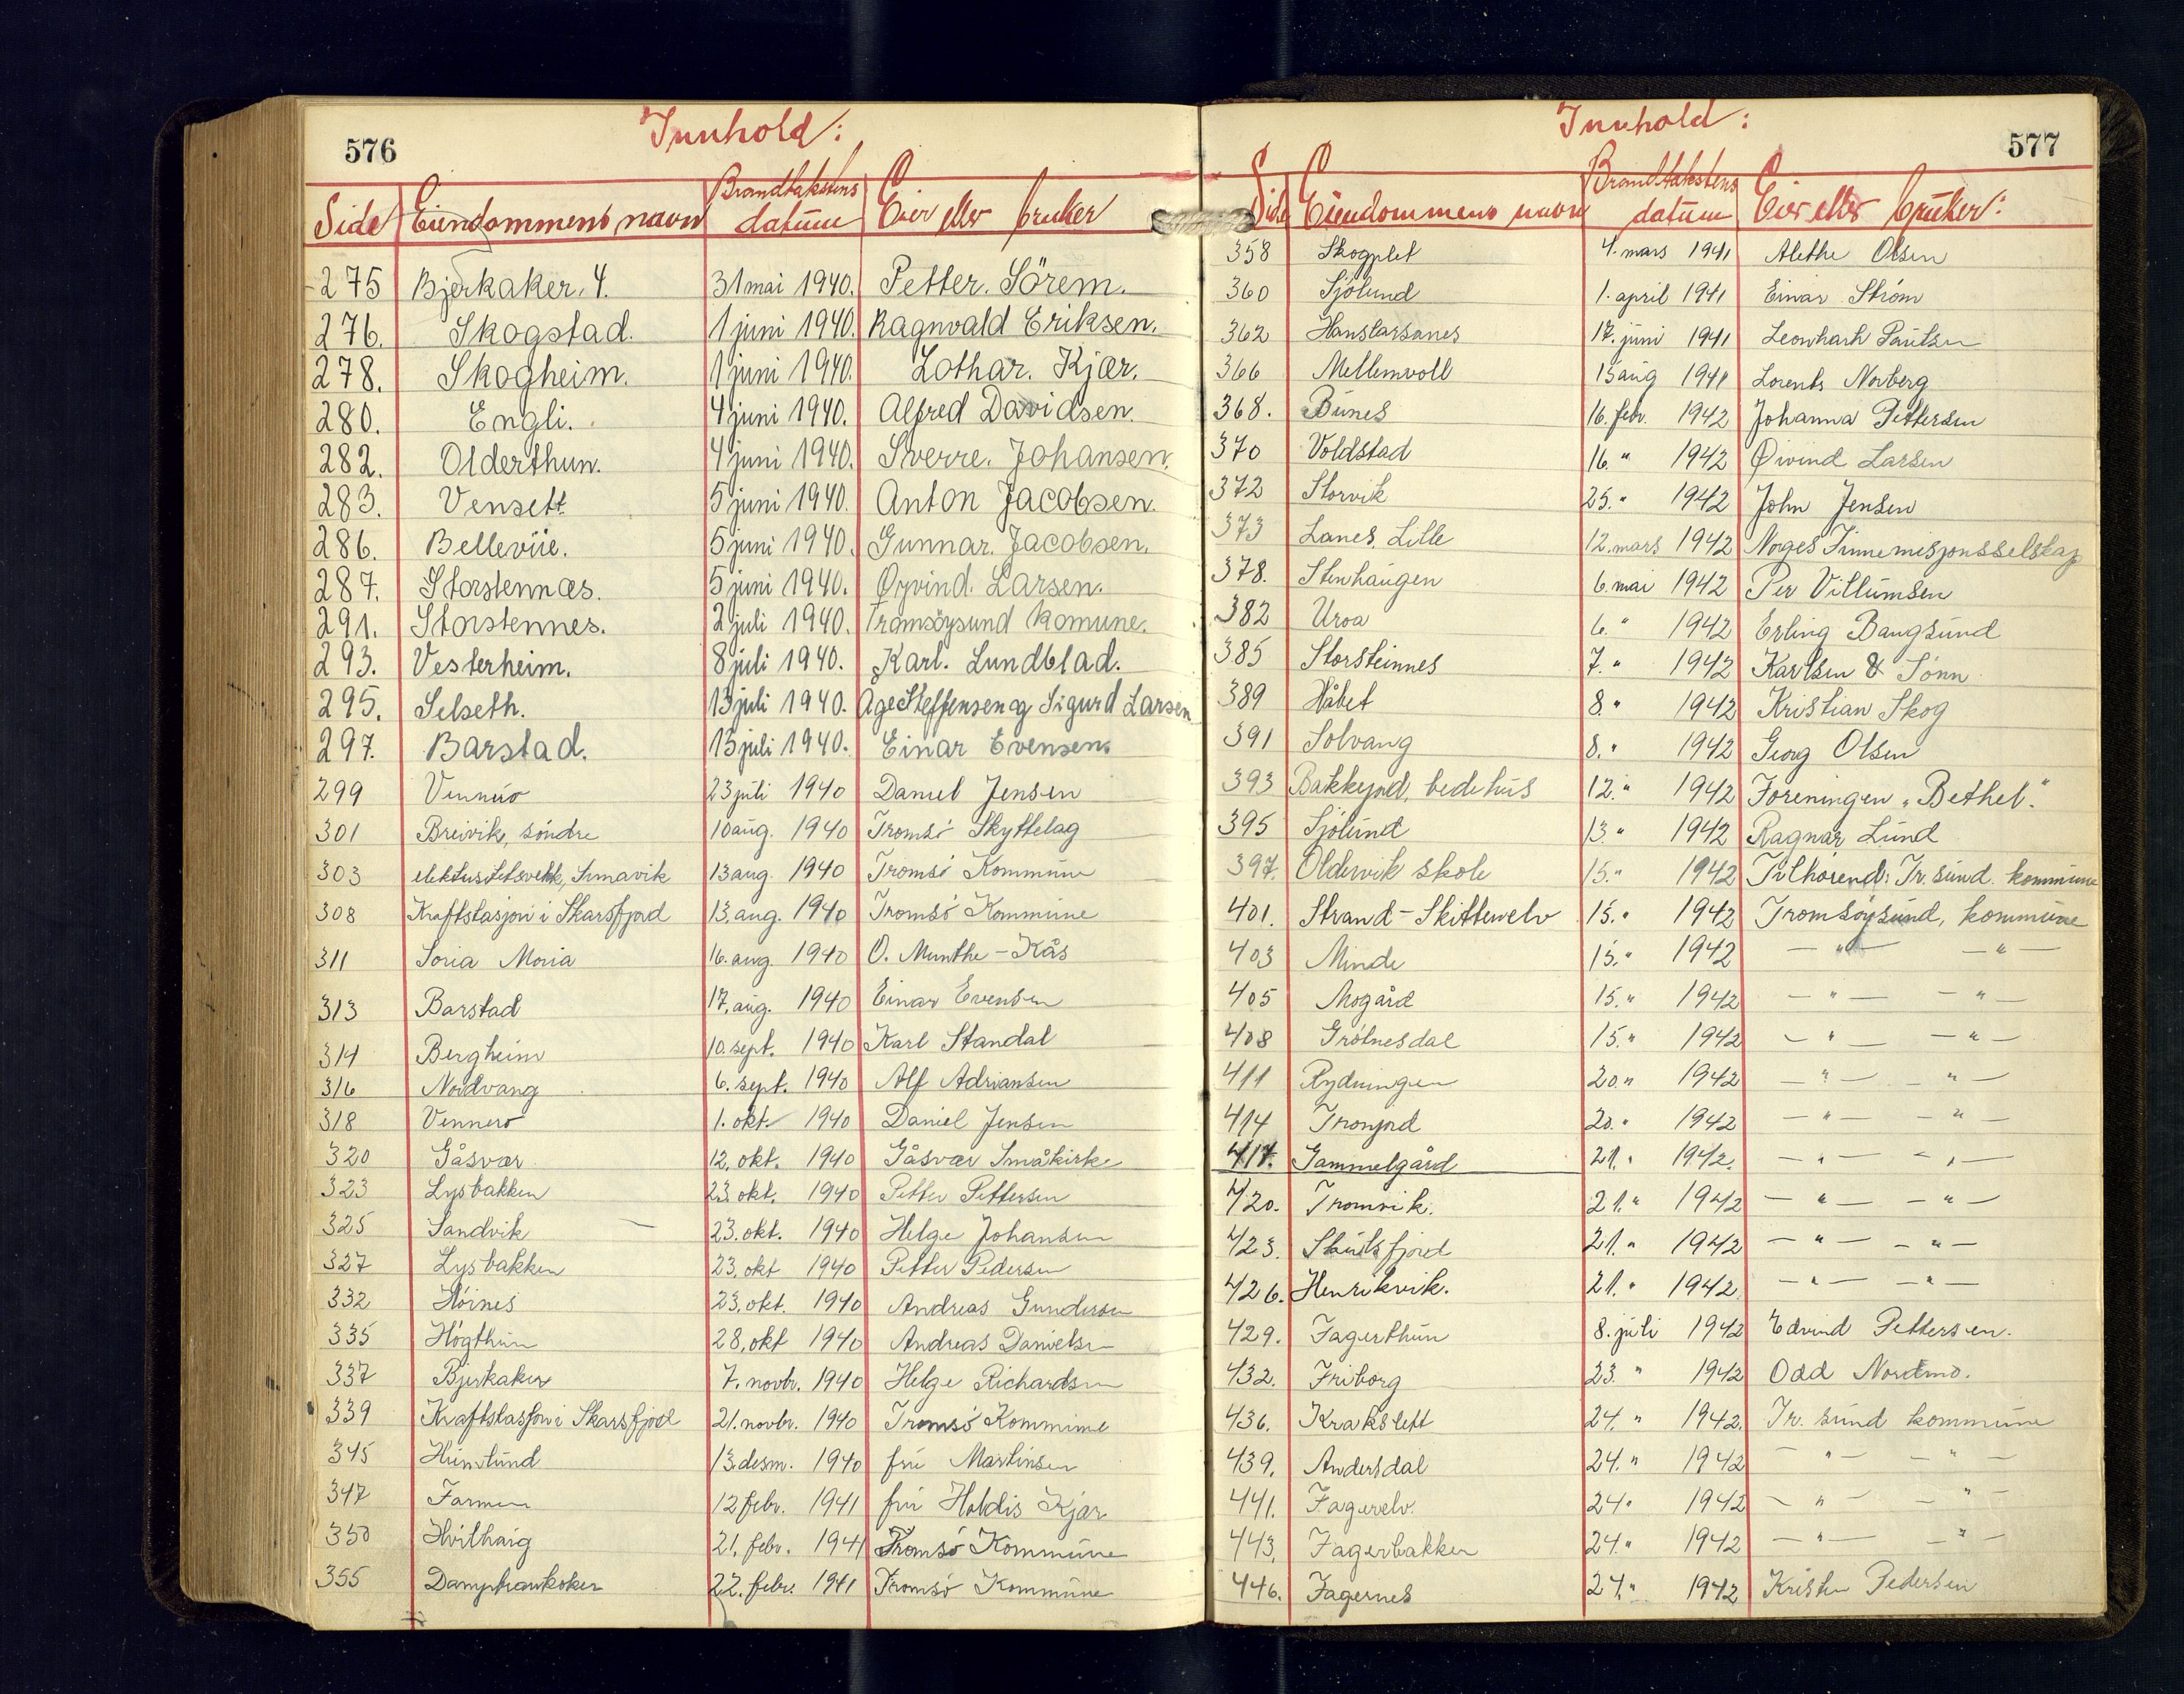 576
Innhold:
Side Eiendommens navn Brandtakstens datum Eier eller bruker
275 Bjerkaker. 4. 31 mai 1940. Petter. Sörem.
276. Skogstad. 1 juni 1940. Ragnvald Eriksen.
278. Skogheim. 1 juni 1940. Lothar. Kjær.
280. Engli. 4 juni 1940. Alfred Davidsen.
282. Olderthun. 4 juni 1940. Sverre. Johansen.
283. Vensett. 5 juni 1940. Anton Jacobsen.
286. Bellevüe. 5 juni 1940. Gunnar. Jacobsen.
287. Storstennæs. 5 juni 1940. Øyvind. Larsen.
291. Storstennes. 2 juli 1940. Tromsöysund Komune.
293. Vesterheim. 8 juli 1940. Karl. Lundblad.
295. Selseth. 13 juli 1940. Age Steffensen og Sigurd Larsen
297. Barstad. 15 juli 1940. Einar Evensen.
299 Vennero 23 juli 1940 Daniel Jensen
301 Breivik, söndre 10 aug. 1940 Tromsö Skyttelag
303 elektrisitetsverk, Simavik 13 aug. 1940 Tromsö Kommune
308 Kraftstasjon i Skarsfjord 13. aug. 1940 Tromsö Kommune
311 Soria Moria 16. aug. 1940 O. Munthe-Kås
313 Barstad 17. aug. 1940 Einar Evensen
314 Bergheim 10. sept. 1940 Karl Standal
316 Nordvang 6. sept. 1940 Alf Adriansen
318 Vennero 1. okt. 1940 Daniel Jensen
320 Gåsvær 12. okt. 1940 Gåsvær Småkirke
323 Lysbakken 23. okt. 1940 Petter Pettersen
325 Sandvik 23. okt. 1940 Helge Johansen
327 Lysbakken 23. okt 1940 Petter Pedersen
332 Höines 23. okt. 1940 Andreas Gundersen
335 Högthun 28. okt 1940 Andreas Danielsen
337 Bjerkaker 7. novbr. 1940 Helge Richardsen
339 Kraftstasjon i Skarsfjord 21. novbr. 1940 Tromsö Kommune
345 Hünstünd 13. desm. 1940 frü Martinsen
347 Farmen 12 febr. 1941 frü Haldis Kjær
350 Hvilhaug 21. febr. 1941 Tromsö Kommüne
355 22. febr. 1941 Tromsö Kommüne
577
Innhold:
Side Eiendommens navn Brandtakstens datum Eier eller brüker:
358 Skogplet 4. mars 1941 Alethe Olsen
360 Sjölund 1. april 1941 Einar Ström
362 Hanslarsanes 17. juni 1941 Leonhard Paulsen
366 Mellemvoll 15 aug 1941 Lorents Norberg
368. Bünes 16. febr. 1942 Johanna Pettersen
370 Voldstad 16. " 1942 Øivind Larsen
372 Storvik 25. " 1942 John Jensen
373 Lanes. Lille 12. mars 1942 Norges Finnemisjonsselskap
378. Stenhaugen 6. mai 1942 Per Villumsen
382 Uroa 6. " 1942 Erling Bangsund
385 Storsteinnes 7. " 1942 Karlsen & Sönn
389 Håbet 8. " 1942 Kristian Skog
391 Solvang 8. " 1942 Georg Olsen
393 Bakkejord, bedehus 12. " 1942 Foreningen "Bethel."
395 Sjölund 13. " 1942 Ragnar Lund
397. Oldervik skole 15. " 1942 Tilhörend: Tr. sund. kommune
401. Strand-Skittenelv 15. " 1942 Tromsöysund, kommune
403 Minde 15. " 1942 — " — — " —
405 Mogård 15. " 1942 — " — — " —
408 Grötnesdal 15. " 1942 — " — — " —
411 Rydningen 20. " 1942 — " — — " —
414 Tronjord 20. " 1942 — " — — " —
417. Gammelgård 21. " 1942. — " — — " —
420. Tromvik. 21. " 1942 — " — — " —
423. Skulsfjord 21. " 1942 — " — — " —
426. Henrikvik. 21. " 1942. — " — — " —
429. Fagerthun 8. juli 1942 Edvind Pettersen.
432. Friborg 23. " 1942 Odd Nordmo.
436. Krakslett 24. " 1942. Tr. sund kommune
439. Andersdal 24. " 1942 — " — — " —
441. Fagerelv. 24. " 1942 — " — — " —
443. Fagerbakken 24. " 1942 — " — — " —
446. Fagernes 24. " 1942 Kristen Pedersen